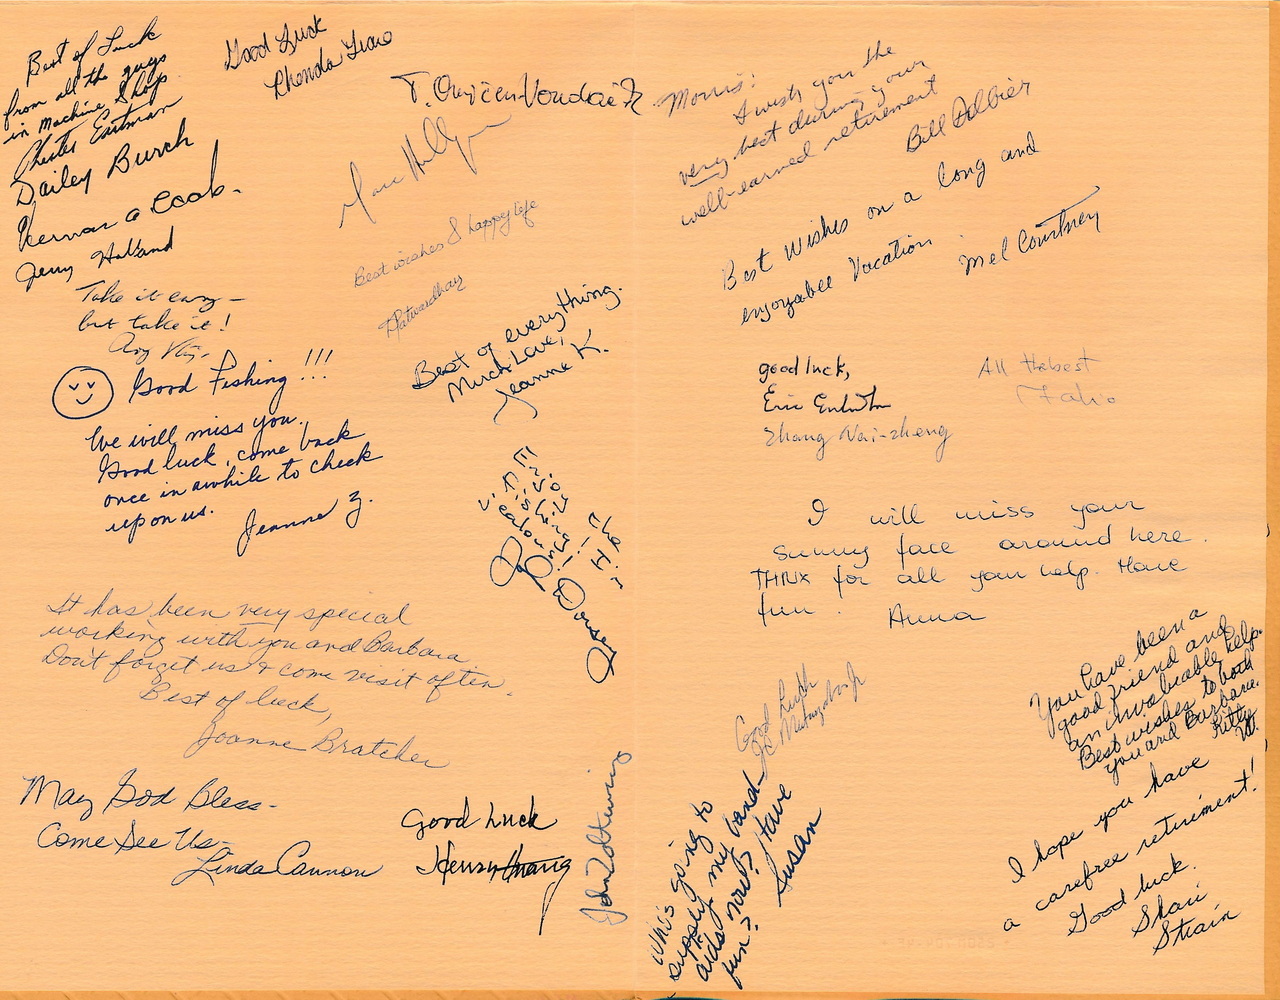 Best of Luck
from all the guys
in Machine Shop
Chester Eastman
Dailey Burch
Herman A Cook
Jerry Holland
Take it easy –
but take it!
Good Luck
Rhonda
Best wishes & happy life
Patwardhan
Good Fishing!!!
We will miss you.
Good luck, come back
once in awhile to check
up on us.
Jeanne Z.
Best of everything.
Much Love,
Jeanne K.
Enjoy the
fishing!
It has been very special
working with you and Barbara
Don't forget us & come visit often.
Best of luck,
Joanne Bratcher
May God Bless –
Come See Us –
Linda Cannon
Good Luck
Henry Chang
John
Morris:
I wish you the
very best during your
well-earned retirement
Bill
Best Wishes on a long and
enjoyable Vacation.
Mel Courtney
good luck,
Eric
Zhang Nai-zheng
All the best
I will miss your
sunny face around here.
THNX for all your help. Have
fun. Anna
You have been a
good friend and
an invaluable help.
Best wishes to both
you and Barbara.
Kitty
Good Luck
Who's going to
supply my band-
aids now? Have
fun? Susan
I hope you have
a carefree retirement!
Good luck.
Shari
Strain